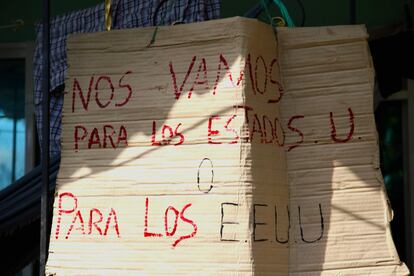 NOS VAMOS
PARA LOS ESTADOS U.
O
PARA LOS E.E.U.U